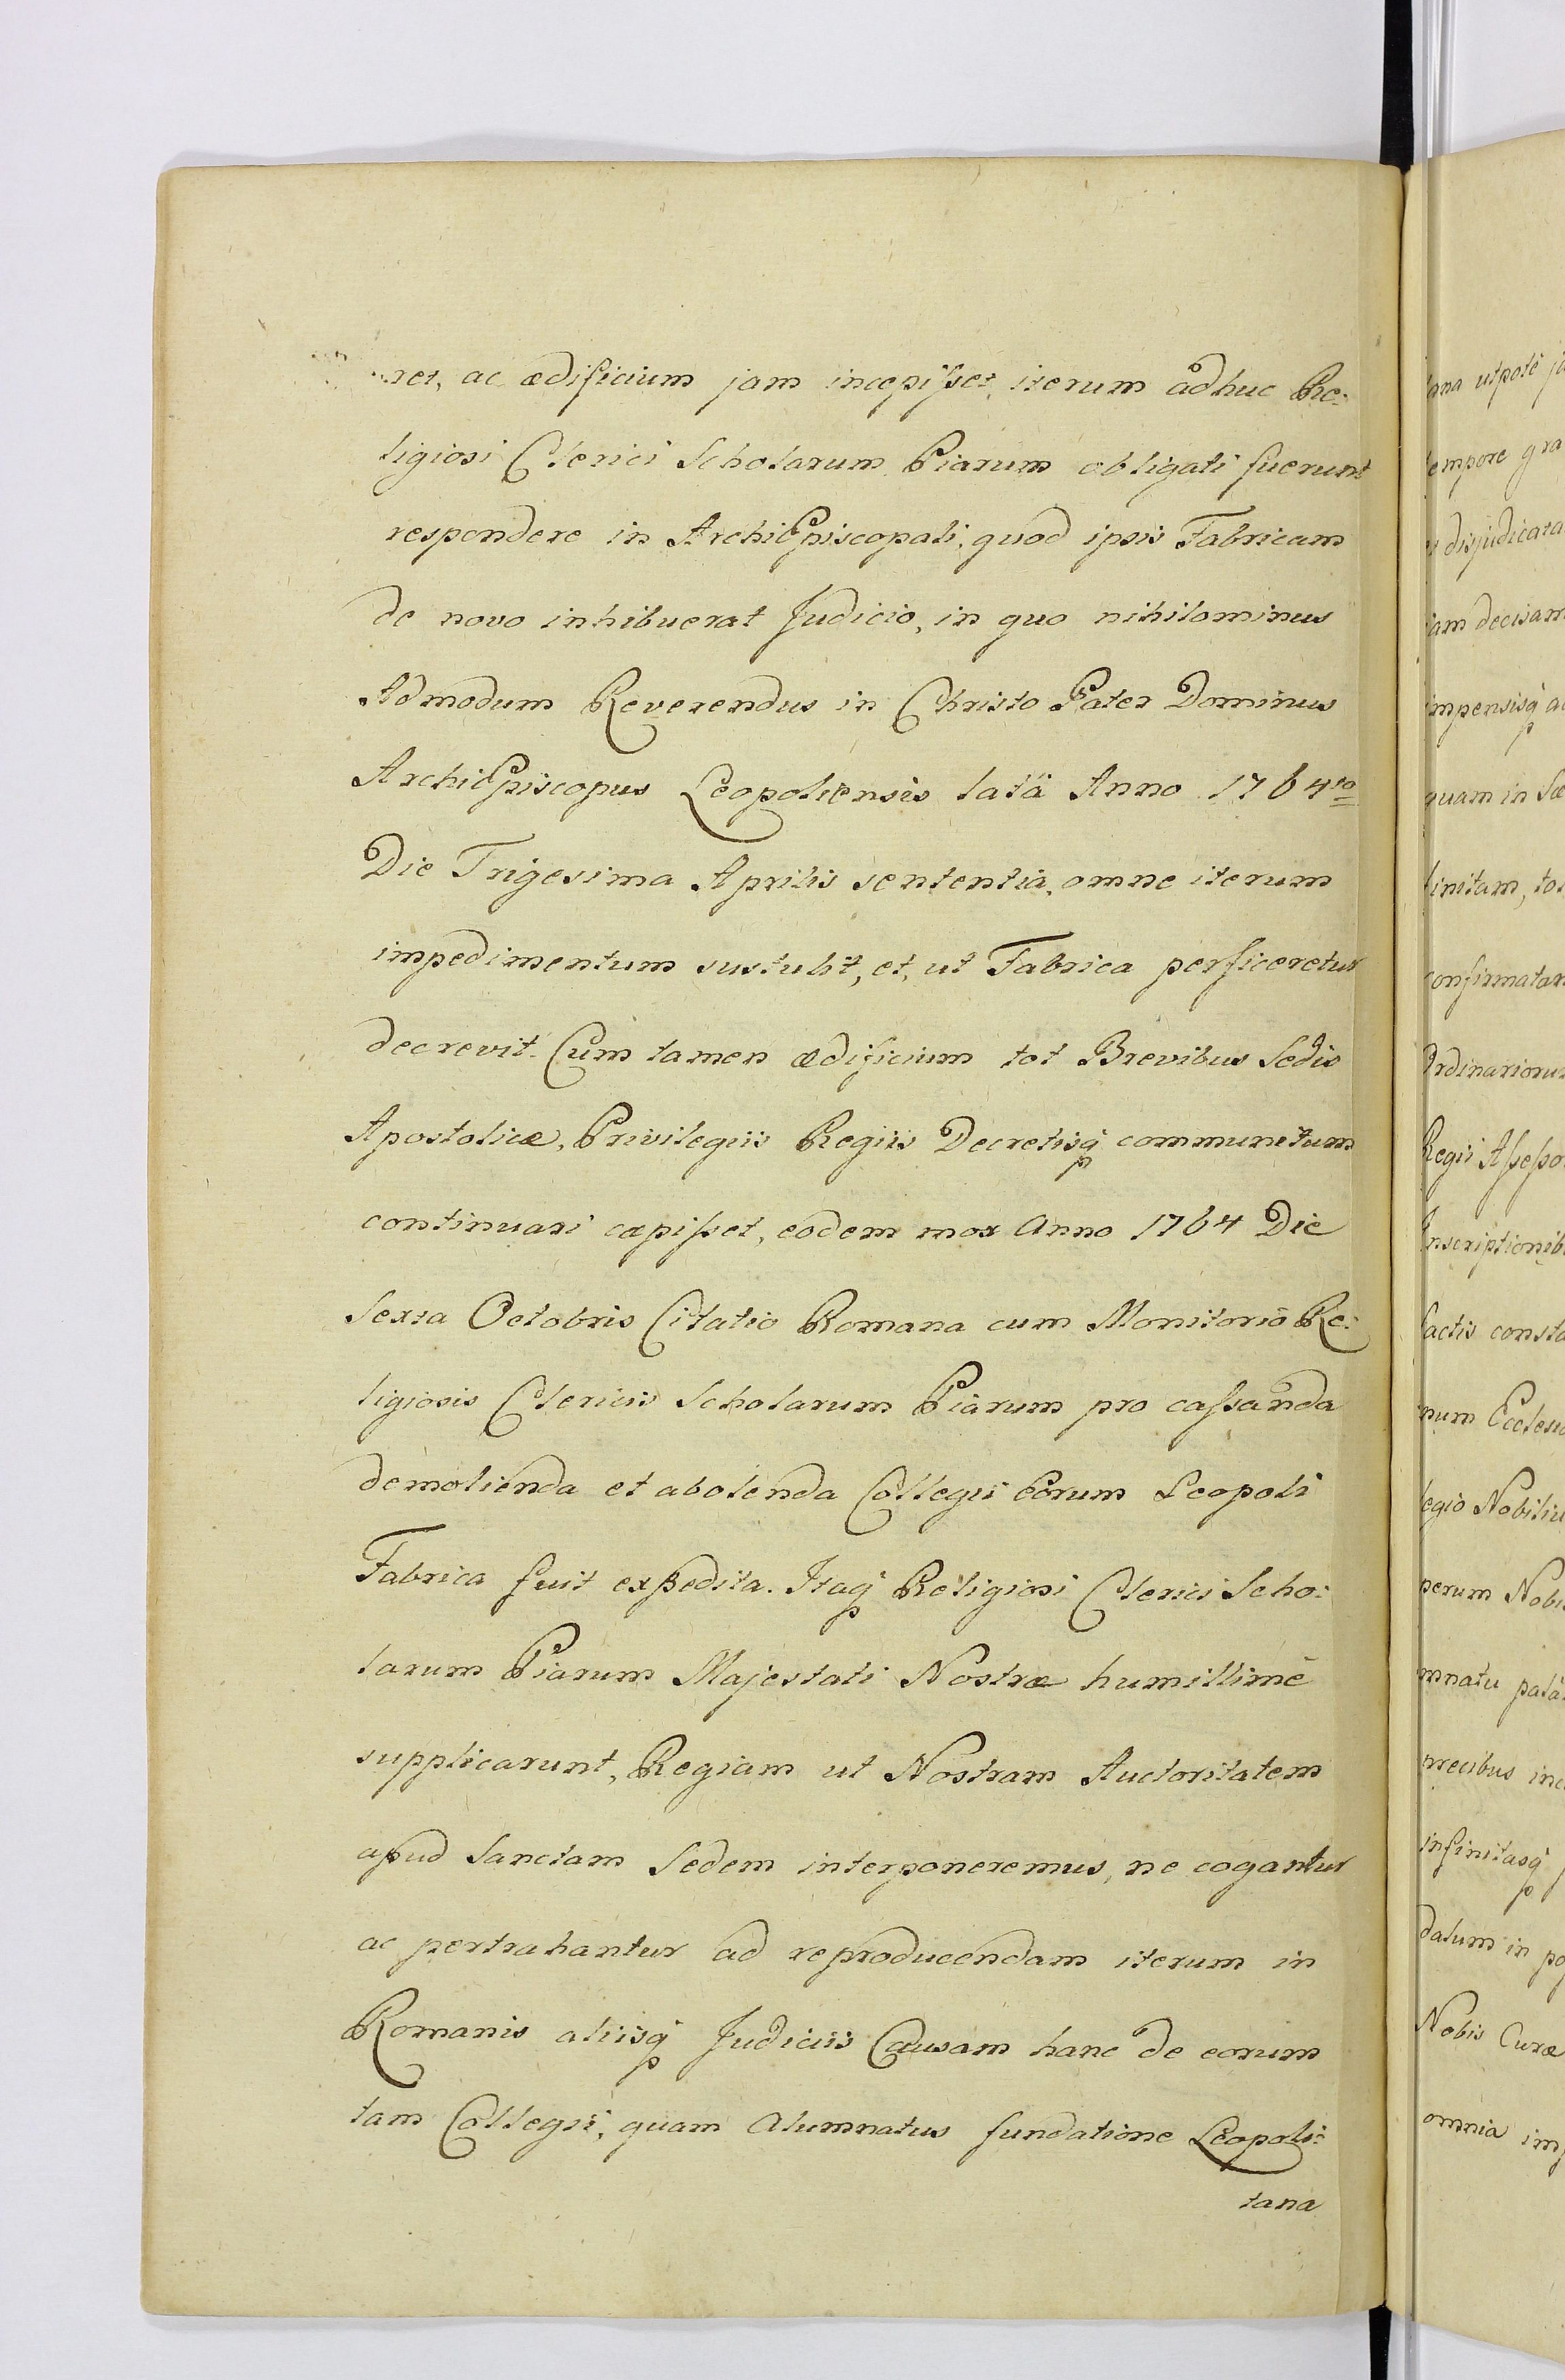 ret, ac ædificium jam incepisset, iterum adhuc Re:
ligiosi Clerici Scholarum Piarum obligati fuerunt
respondere in ArchiEpiscopali, quod ipsis Fabricam
de novo inhibuerat Judicio, in quo nihilominus
Admodum Reverendus in Christo Pater Dominus
ArchiEpiscopus Leopoliensis latâ Anno 1764to
Die Trigesima Aprilis sententia, omne iterum
impedimentum sustulit, et, ut Fabrica perficeretur
decrevit. Cum tamen ædificium tot Brevibus Sedis
Apostolicæ, Privilegiis Regiis Decretisq communitum
continuari cæpisset, eodem mox Anno 1764 Die
Sexta Octobris Citatio Romana cum Monitorio Re:
ligiosis Clericis Scholarum Piarum pro cassanda
demolienda et abolenda Collegii Eorum Leopoli
Fabrica fuit expedita. Itaq Religiosi Clerici Scho:
larum Piarum Majestati Nostræ humillimè
supplicarunt, Regiam ut Nostram Auctoritatem
apud Sanctam Sedem interponeremus, ne cogantur
ac pertrahantur ad reproducendam iterum in
Romanis aliisq Judiciis Causam hanc de eorum
tam Collegii, quam Alumnatus fundatione Leopoli:
tana
ana utpote
empore gra
disjudicata
am decisam
impensisq
quam in
finitam,
confirmatam
Ordinariorum
Regii Assesso
Inscriptionib
factis consta
num Ecclesi
legio Nobiliu
perum Nobi
mnatu
precibus
infinitasq
datum in
Nobis Curæ
omnia im